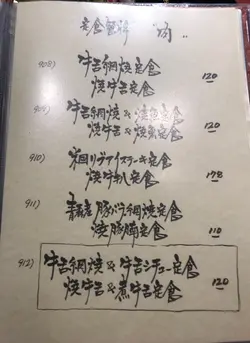 定食類 "肉"
908)
牛舌網焼定食
焼牛舌定食
120
909)
牛舌網焼 &
焼牛舌 &
120
910)
米国リブアイステーキ定食
焼牛扒定食
178
911)
豚バラ網焼定食
焼豚腩定食
110
912)
牛舌網焼 & 牛舌シチュー定食
焼牛舌 & 煮牛舌定食
120